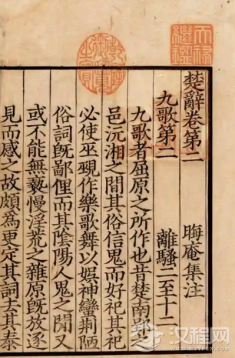 楚辭卷第二
晦庵集注
九歌第二
離騷二至十二
九歌者屈原之所作也昔楚南郢之
邑沅湘之間其俗信鬼而好祀其祀
必使巫覡作樂歌舞以娛神蠻荆陋
俗詞旣鄙俚而其陰陽人鬼之間又
或不能無褻慢淫荒之雜原旣放逐
見而感之故頗為更定其詞去其泰
汉程网